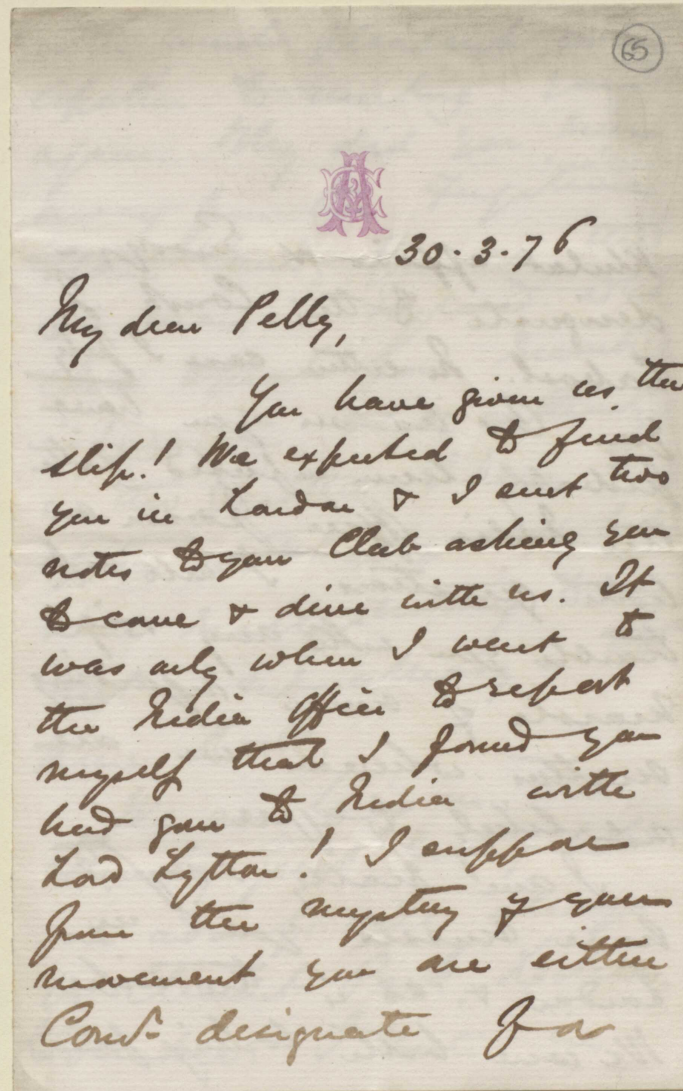 65
30.3.76
My dear Pelly,
You have given us the
slip! We expected to find
you in London & I sent two
notes to your Club asking you
to come & dine with us. It
was only when I went to
the India Office to report
myself that I found you
had gone to India with
Lord Lytton! I suppose
from the mystery of your
movement you are either
Comr. designate for